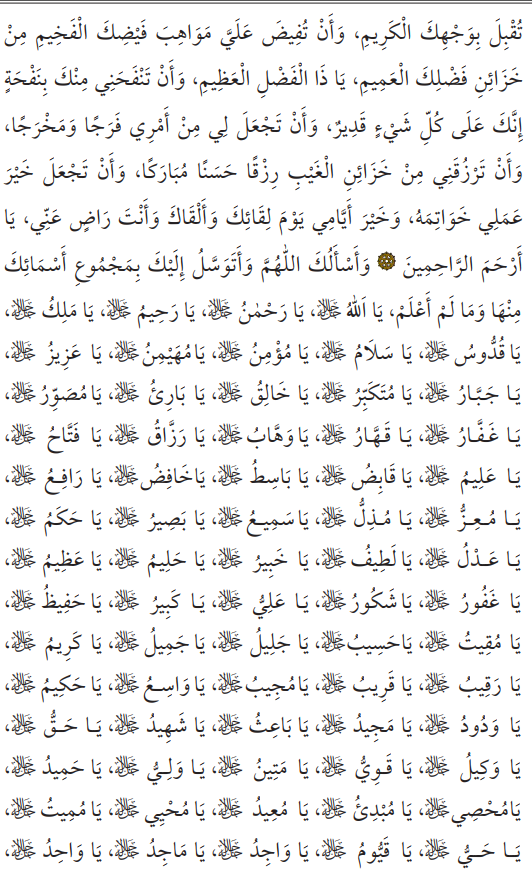 تُقْبِلَ بِوَجْهِكَ الْكَرِيمِ، وَأَنْ تُفِيضَ عَلَيَّ مَوَاهِبَ فَيْضِكَ الْفَخِيمِ مِنْ
خَزَائِنِ فَضْلِكَ الْعَمِيمِ، يَا ذَا الْفَضْلِ الْعَظِيمِ، وَأَنْ تَنْفَحَنِي مِنْكَ بِنَفْحَةٍ
إِنَّكَ عَلَى كُلِّ شَيْءٍ قَدِيرٌ، وَأَنْ تَجْعَلَ لِي مِنْ أَمْرِي فَرَجًا وَمَخْرَجًا،
وَأَنْ تَرْزُقَنِي مِنْ خَزَائِنِ الْغَيْبِ رِزْقًا حَسَنًا مُبَارَكًا، وَأَنْ تَجْعَلَ خَيْرَ
عَمَلِي خَوَاتِمَهُ، وَخَيْرَ أَيَّامِي يَوْمَ لِقَائِكَ وَأَلْقَاكَ وَأَنْتَ رَاضٍ عَنِّي، يَا
أَرْحَمَ الرَّاحِمِينَ ۞ وَأَسْأَلُكَ اللّٰهُمَّ وَأَتَوَسَّلُ إِلَيْكَ بِمَجْمُوعِ أَسْمَائِكَ
مِنْهَا وَمَا لَمْ أَعْلَمْ، يَا اَللّٰهُ ﷻ، يَا رَحْمٰنُ ﷻ، يَا رَحِيمُ ﷻ، يَا مَلِكُ ﷻ،
يَا قُدُّوسُ ﷻ، يَا سَلَامُ ﷻ، يَا مُؤْمِنُ ﷻ، يَا مُهَيْمِنُ ﷻ، يَا عَزِيزُ ﷻ،
يَا جَبَّارُ ﷻ، يَا مُتَكَبِّرُ ﷻ، يَا خَالِقُ ﷻ، يَا بَارِئُ ﷻ، يَا مُصَوِّرُ ﷻ،
يَا غَفَّارُ ﷻ، يَا قَهَّارُ ﷻ، يَا وَهَّابُ ﷻ، يَا رَزَّاقُ ﷻ، يَا فَتَّاحُ ﷻ،
يَا عَلِيمُ ﷻ، يَا قَابِضُ ﷻ، يَا بَاسِطُ ﷻ، يَا خَافِضُ ﷻ، يَا رَافِعُ ﷻ،
يَا مُعِزُّ ﷻ، يَا مُذِلُّ ﷻ، يَا سَمِيعُ ﷻ، يَا بَصِيرُ ﷻ، يَا حَكَمُ ﷻ،
يَا عَدْلُ ﷻ، يَا لَطِيفُ ﷻ، يَا خَبِيرُ ﷻ، يَا حَلِيمُ ﷻ، يَا عَظِيمُ ﷻ،
يَا غَفُورُ ﷻ، يَا شَكُورُ ﷻ، يَا عَلِيُّ ﷻ، يَا كَبِيرُ ﷻ، يَا حَفِيظُ ﷻ،
يَا مُقِيتُ ﷻ، يَا حَسِيبُ ﷻ، يَا جَلِيلُ ﷻ، يَا جَمِيلُ ﷻ، يَا كَرِيمُ ﷻ،
يَا رَقِيبُ ﷻ، يَا قَرِيبُ ﷻ، يَا مُجِيبُ ﷻ، يَا وَاسِعُ ﷻ، يَا حَكِيمُ ﷻ،
يَا وَدُودُ ﷻ، يَا مَجِيدُ ﷻ، يَا بَاعِثُ ﷻ، يَا شَهِيدُ ﷻ، يَا حَقُّ ﷻ،
يَا وَكِيلُ ﷻ، يَا قَوِيُّ ﷻ، يَا مَتِينُ ﷻ، يَا وَلِيُّ ﷻ، يَا حَمِيدُ ﷻ،
يَا مُحْصِي ﷻ، يَا مُبْدِئُ ﷻ، يَا مُعِيدُ ﷻ، يَا مُحْيِي ﷻ، يَا مُمِيتُ ﷻ،
يَا حَيُّ ﷻ، يَا قَيُّومُ ﷻ، يَا وَاجِدُ ﷻ، يَا مَاجِدُ ﷻ، يَا وَاحِدُ ﷻ،